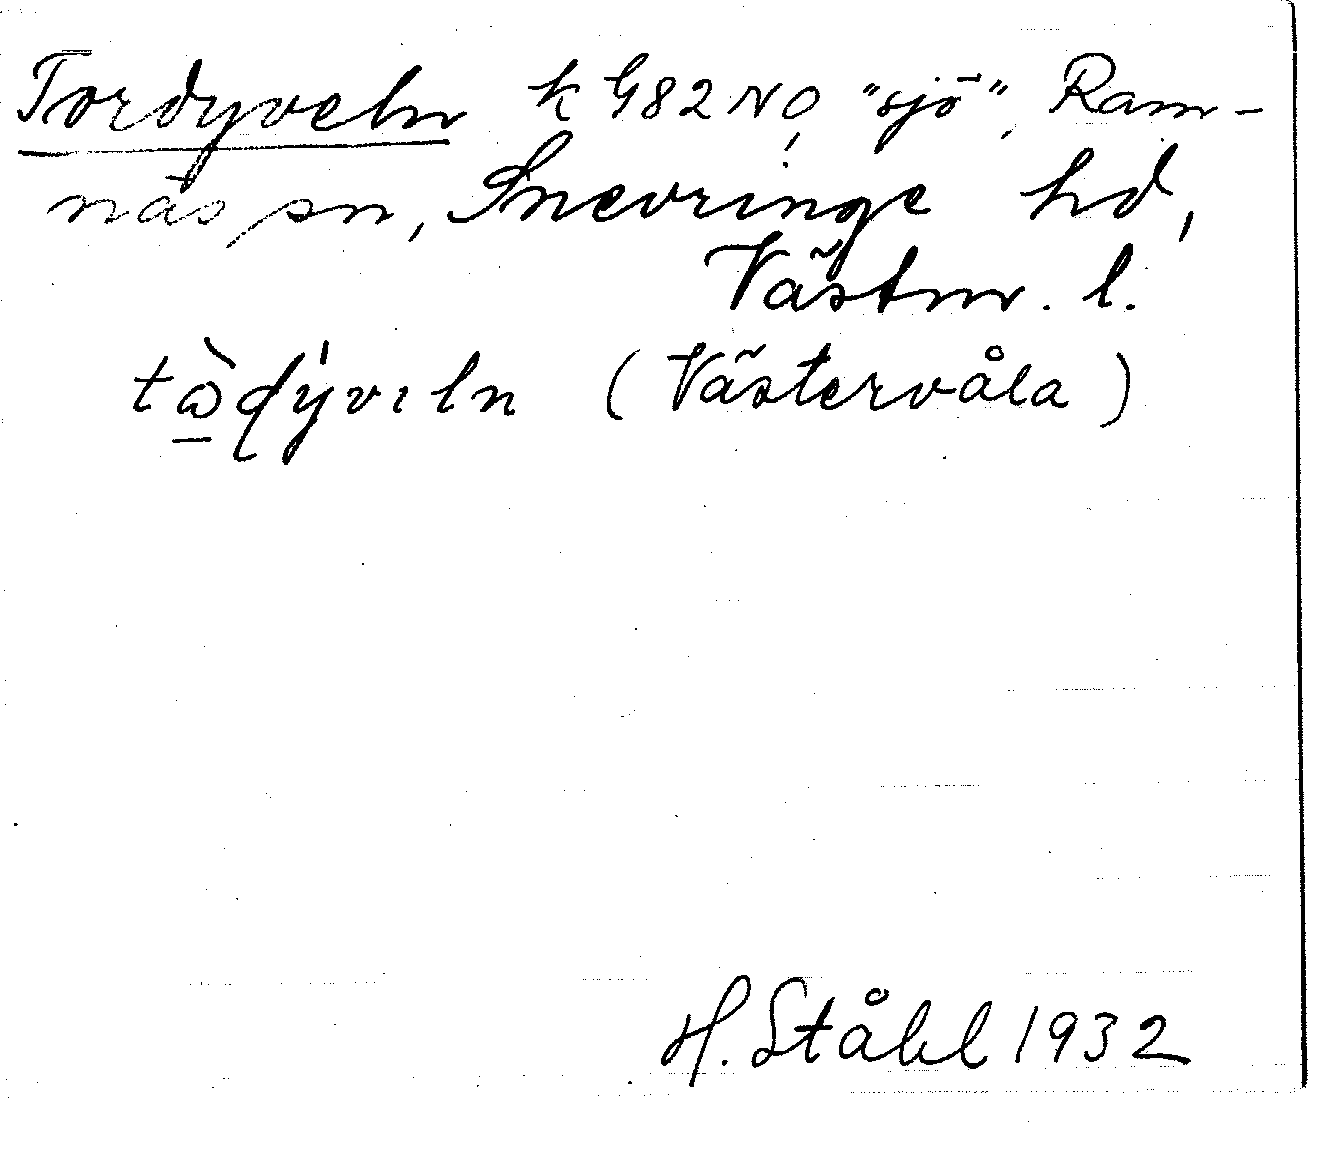 Tordyveln k G82 NO, "sjö", Ram-
näs sn, Snevringe hd,
Västm. l.
(Västervåla)
H. Ståhl 1932